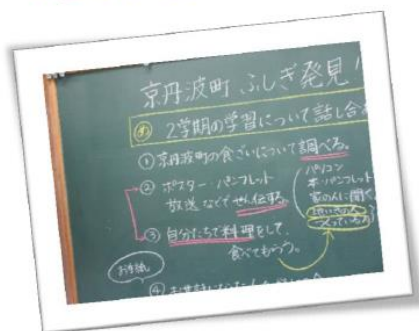 京丹波町 ふしぎ発見!
め 2学期の学習について話し合
① 京丹波町の食ざいについて調べる。
② ポスター・パンフレット
放送などでせん伝する。
③ 自分たちで料理をして、
食べてもらう。
パソコン
本・パンフレット
家の人に聞く
お手紙
④